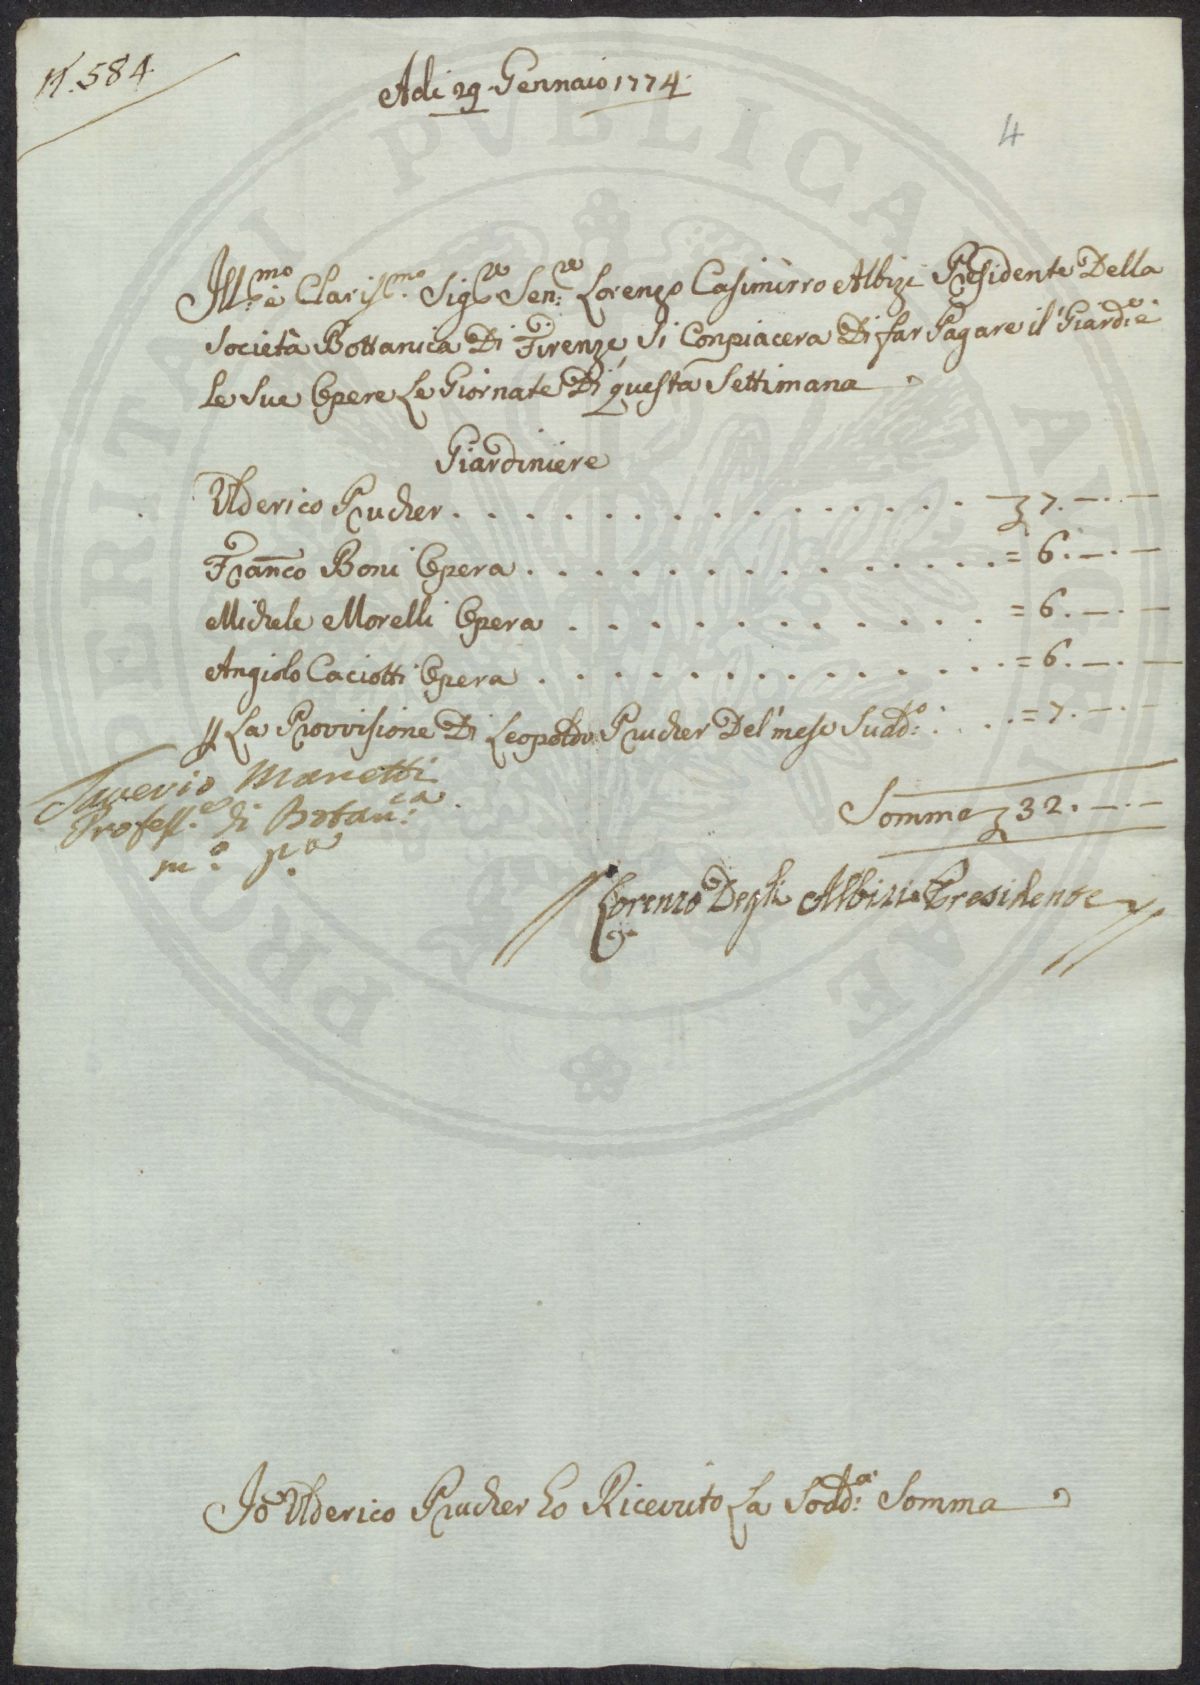 N. 584.
Adi 29 Gennaio 1774.
4
Ill:mo e Claris:mo Sig:re Sen:re Lorenzo Casimirro Albizi Presidente Della
Società Bottanica Di Firenze, Si Conpiacera Di far Pagare il Giard:e e
le Sue Opere Le Giornate Di questa Settimana
Giardiniere
Ulderico Prucher . . . . . . . . . . . . . . . . 7.—.—
Fran:co Boni Opera . . . . . . . . . . . . . . . = 6.—.—
Michele Morelli Opera . . . . . . . . . . . . = 6.—.—
Angiolo Caciotti Opera . . . . . . . . . . . . . = 6.—.—
La Provvisione Di Leopoldo Prucher Del mese Sudd:o . . . = 7.—.—
Saverio Manetti
Profess:e di Botan:ca
m:o p:a
Somma 32.—.—
Lorenzo Degli Albizi Presidente
Io Ulderico Prucher ho Ricevuto La Sodd:a Somma
PRO SPERITATI PVBLICAE AVGENDAE